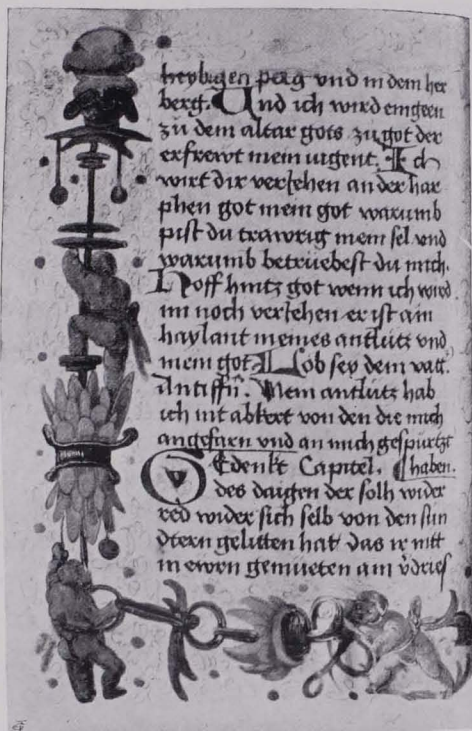 heyligen perg vnd in dem her
berg. Vnd ich wird eingeen
zu dem altar gots zu got der
erfrewt mein iugent. Ich
wirt dir veriehen an der har
phen got mein got warumb
pist du trawrig mein sel vnd
warumb betrüebest du mich.
Hoff hintz got wenn ich wird
im noch veriehen er ist ain
haylant meines antlütz vnd
mein got. Lob sey dem vatt.
Antiffn̄. Mein antlütz hab
ich nit abkert von den die mich
angefarn vnd an mich gespürtzt
haben.
GEdenkt Capitel.
des daigen der solh wider
red wider sich selb von den sün
dtern gelitten hat das ir nitt
in ewrn gemüeten am v̈dries